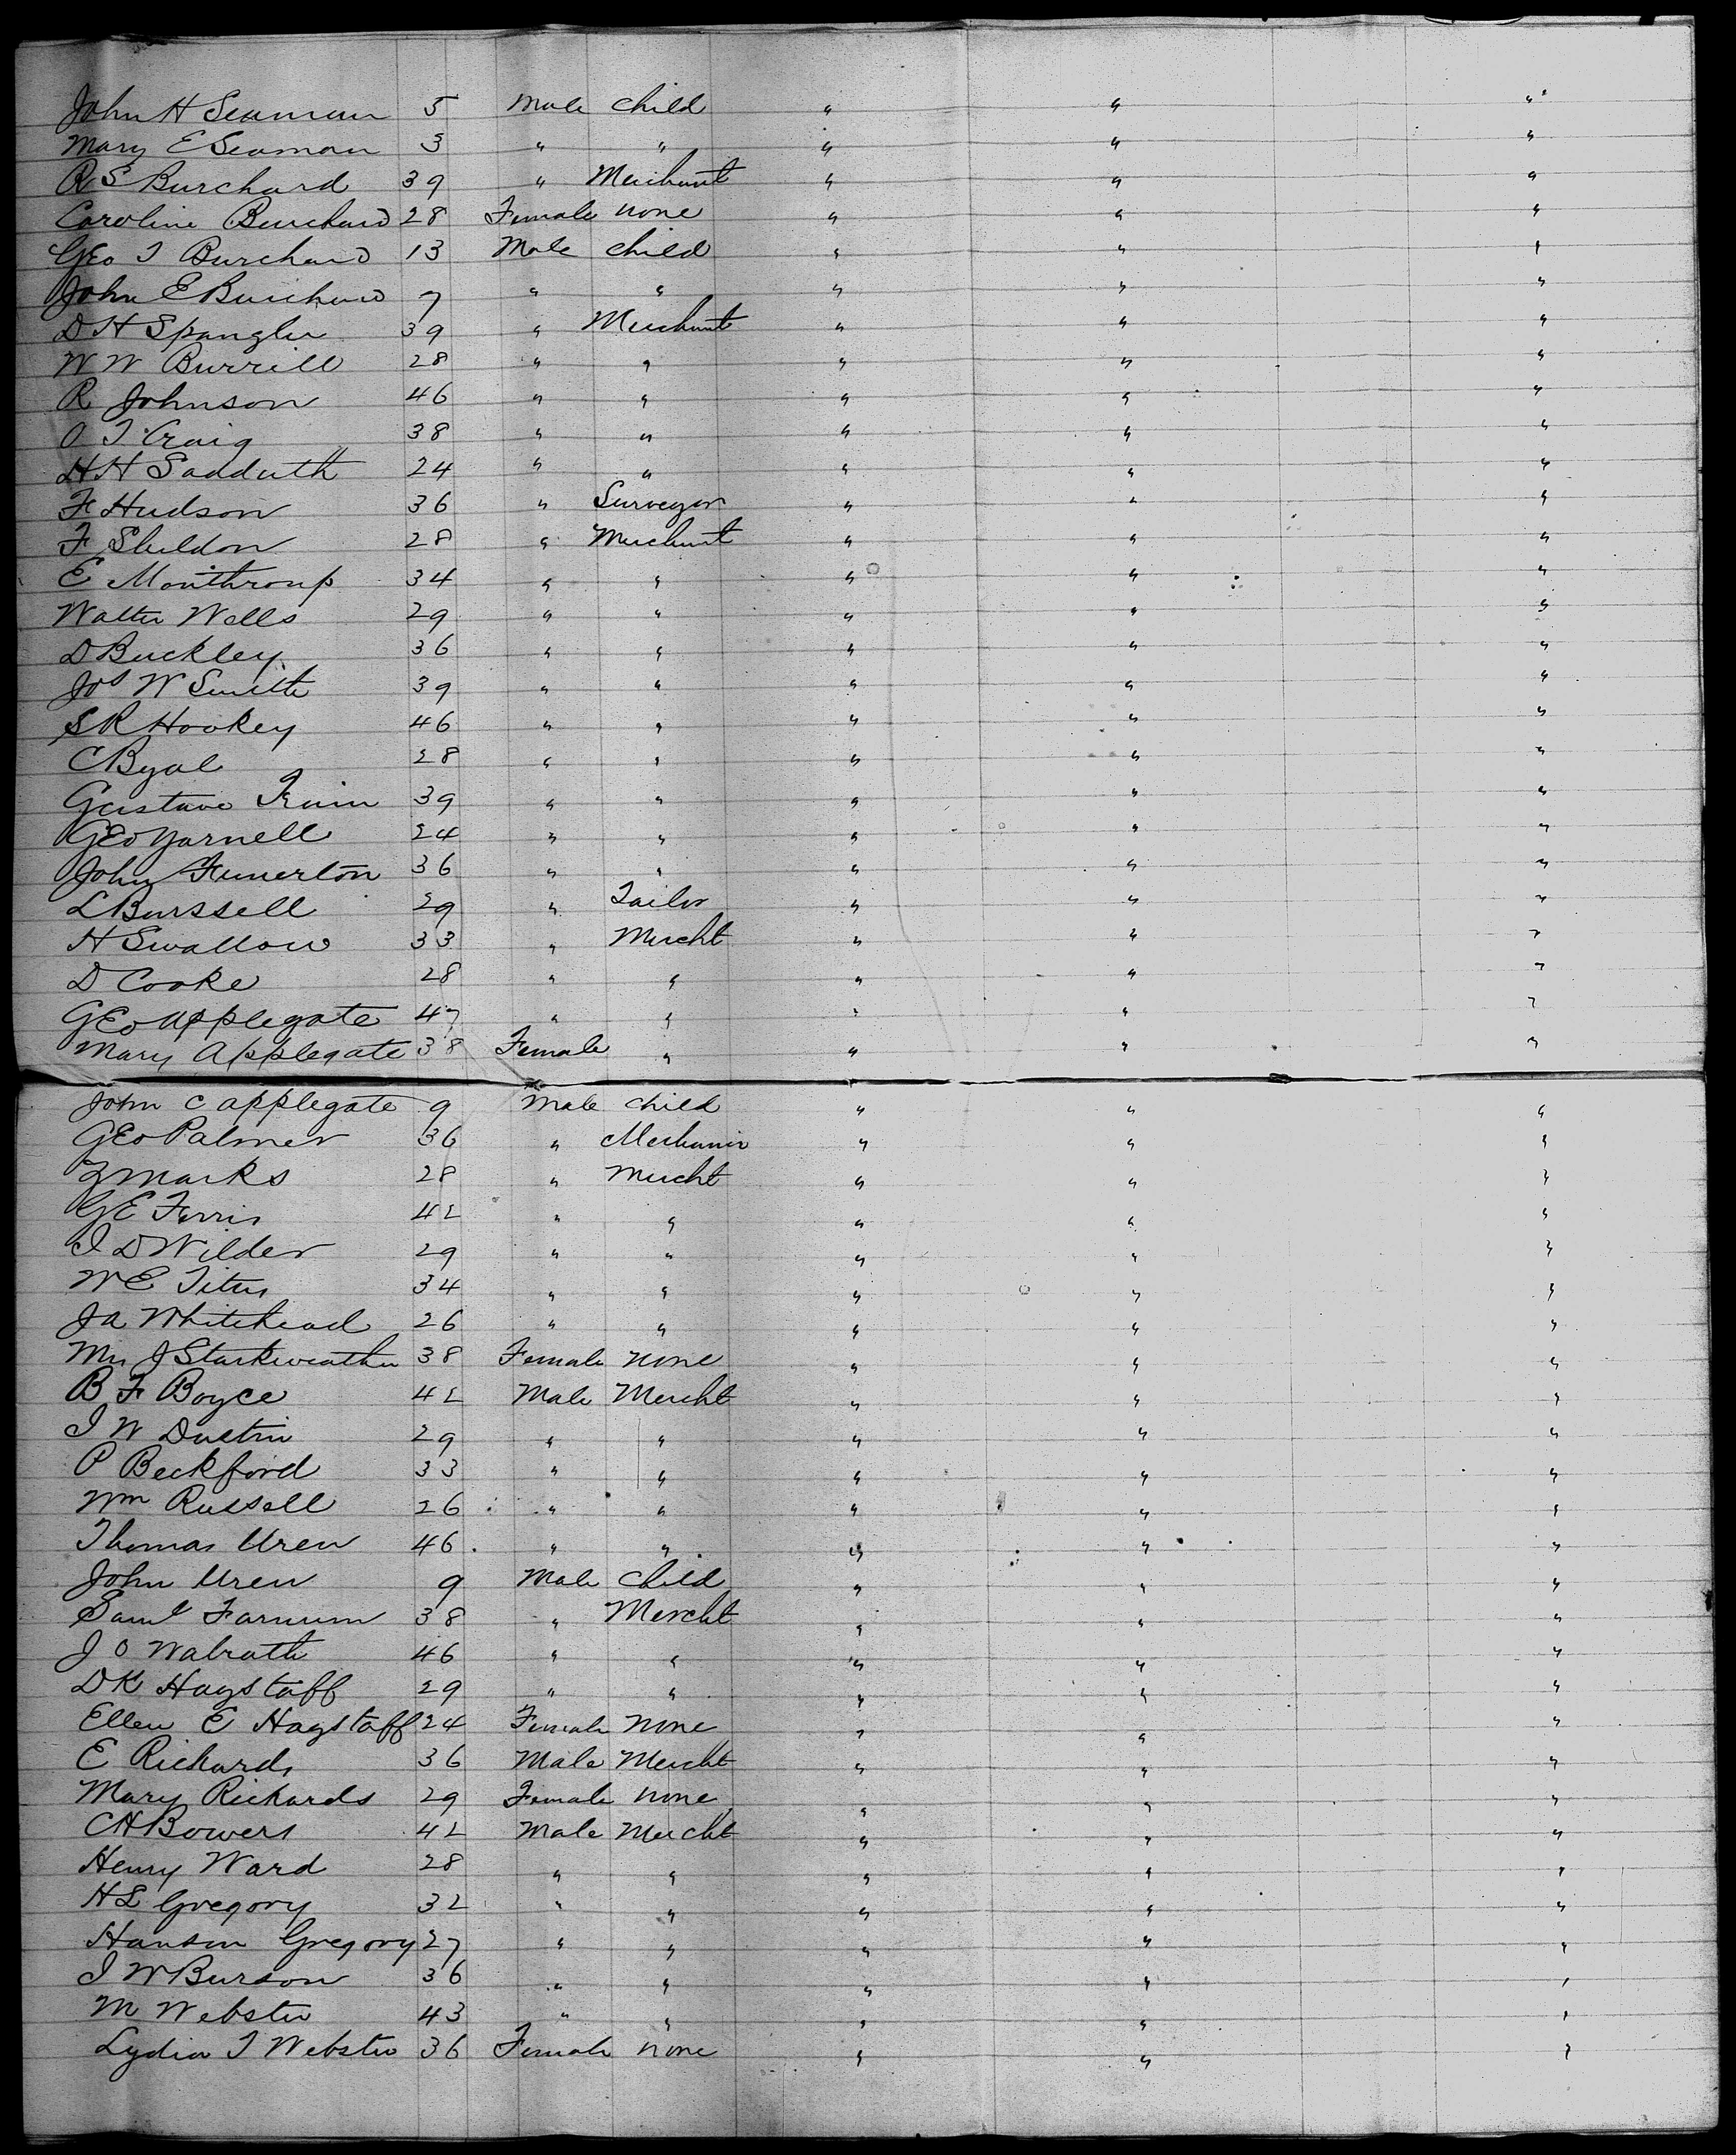 John H Seaman 5 Male Child " " "
Mary E Seaman 3 " " " " "
R S Burchard 39 " Merchant " " "
Caroline Burchard 28 Female none " " "
Geo T Burchard 13 Male child " " "
John E Burchard 7 " " " " "
D H Spangler 39 " Merchant " " "
W W Burrill 28 " " " " "
R Johnson 46 " " " " "
O T Craig 38 " " " " "
H H Sadduth 24 " " " " "
F Hudson 36 " Surveyor " " "
F Sheldon 28 " Merchant " " "
E Monthroup 34 " " " " "
Walter Wells 29 " " " " "
D Buckley 36 " " " " "
Jos W Smith 39 " " " " "
S R Hookey 46 " " " " "
C Byal 28 " " " " "
Gustave Train 39 " " " " "
Geo Yarnell 24 " " " " "
John Fumerton 36 " " " " "
L Burssell 29 " Tailor " " "
H Swallow 33 " Mercht " " "
D Cooke 28 " " " " "
Geo Applegate 47 " " " " "
Mary Applegate 38 Female " " " "
John C Applegate 9 Male child " " "
Geo Palmer 36 " Mechanic " " "
Z Marks 28 " Mercht " " "
G E Ferris 42 " " " " "
I D Wilder 29 " " " " "
W E Titus 34 " " " " "
J A Whitehead 26 " " " " "
Mrs J Starkweather 38 Female none " " "
B F Boyce 42 Male Mercht " " "
I W Dustin 29 " " " " "
P Beckford 33 " " " " "
Wm Russell 26 " " " " "
Thomas Uren 46 " " " " "
John Uren 9 Male Child " " "
Saml Farnum 38 " Mercht " " "
J O Walrath 46 " " " " "
D K Hagstaff 29 " " " " "
Ellen E Hagstaff 24 Female none " " "
E Richards 36 Male Mercht " " "
Mary Richards 29 Female none " " "
C H Bowers 42 Male Mercht " " "
Henry Ward 28 " " " " "
H L Gregory 32 " " " " "
Hanson Gregory 27 " " " " "
I W Burson 36 " " " " "
M Webster 43 " " " " "
Lydia T Webster 36 Female none " " "